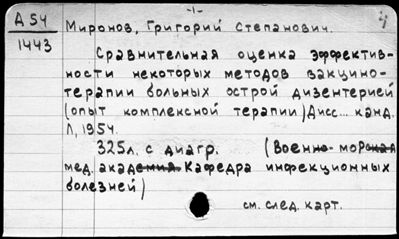 -1-
А54
1443
Миронов, Григорий Степанович.
Сравнительная оценка эффектив-
ности некоторых методов вакцино-
терапии больных острой дизентерией
(опыт комплексной терапии) Дисс... канд.
Л, 1954.
325л. с диагр. (Военно-морская
мед. академия. Кафедра инфекционных
болезней)
см. след. карт.